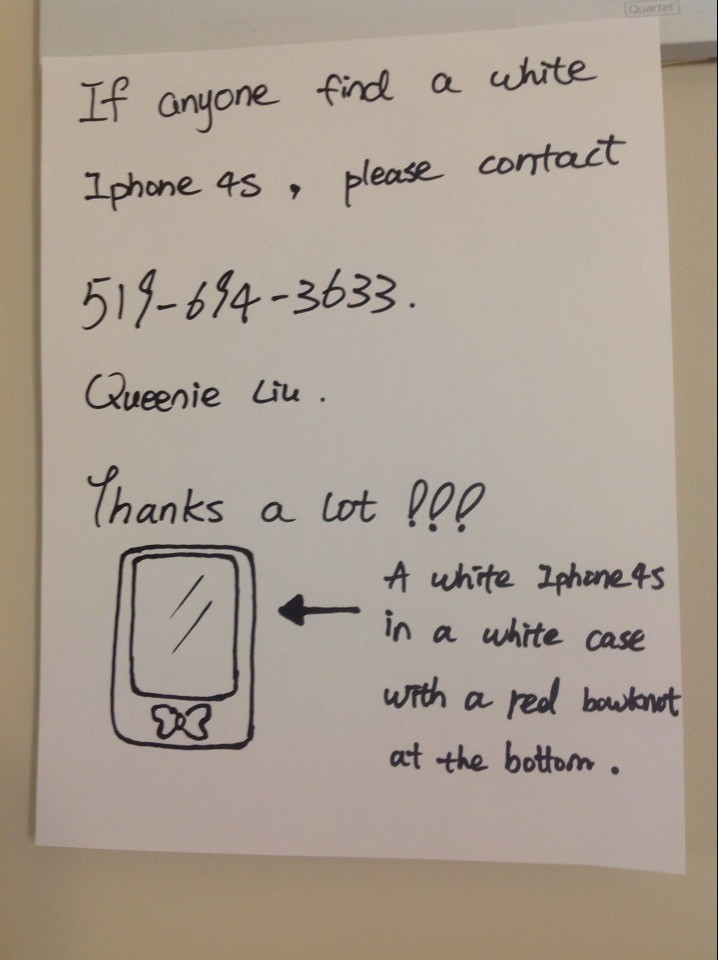 Quartet
If anyone find a white
Iphone 4s, please contact
519-694-3633.
Queenie Liu.
Thanks a lot !!!
A white Iphone4s
in a white case
with a red bowknot
at the bottom.